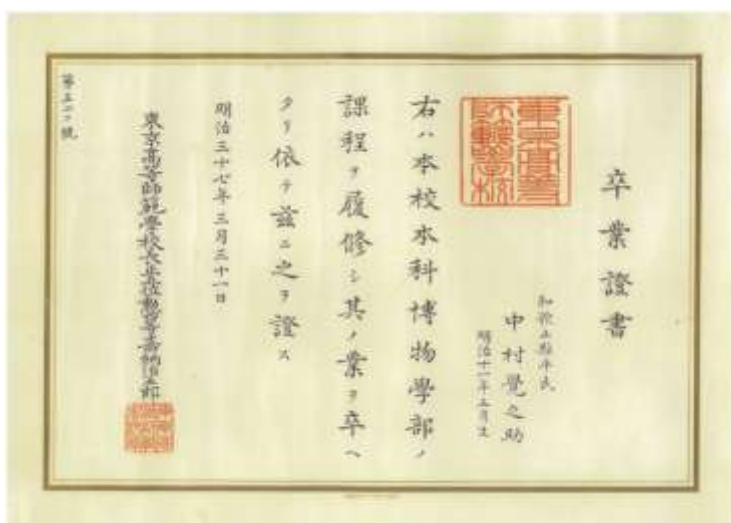 卒業證書
和歌山縣平民
中村覺之助
明治十一年五月生
右ハ本校本科博物學部ノ
課程ヲ履修シ其ノ業ヲ卒ヘ
タリ依テ茲ニ之ヲ證ス
明治三十七年三月三十一日
東京高等師範學校長 嘉納治五郎